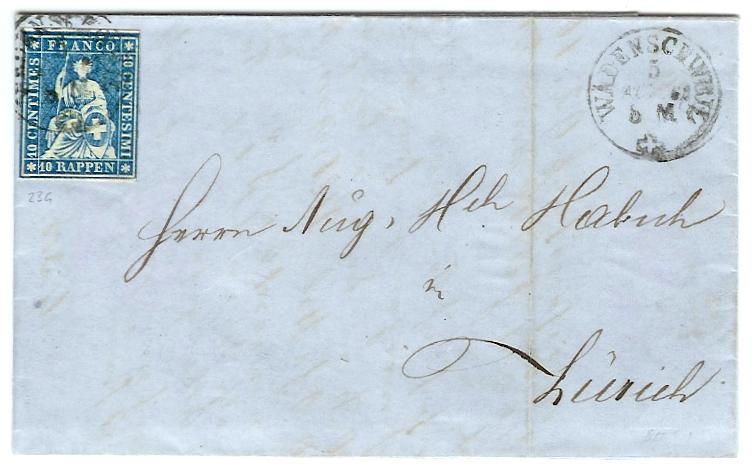 FRANCO
10 CENTIMES
10 CENTESIMI
10 RAPPEN
WÄDENSCHWEIL
5
23G
Herrn Aug. Hch Habich
in
Zürich